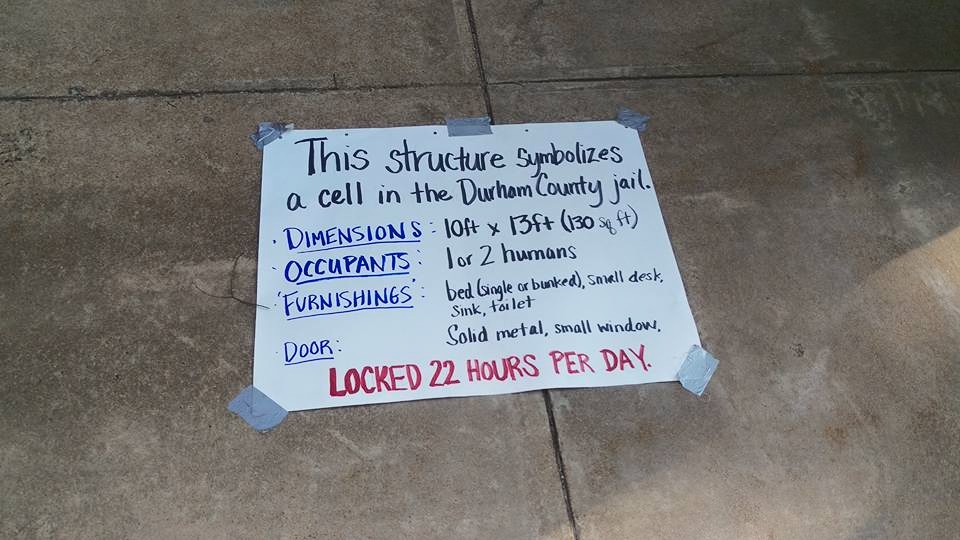 This structure symbolizes
a cell in the Durham County jail.
· DIMENSIONS: 10ft x 13ft (130 sq ft)
· OCCUPANTS: 1 or 2 humans
· 'FURNISHINGS': bed (single or bunked), small desk,
sink, toilet
· DOOR: Solid metal, small window,
LOCKED 22 HOURS PER DAY.